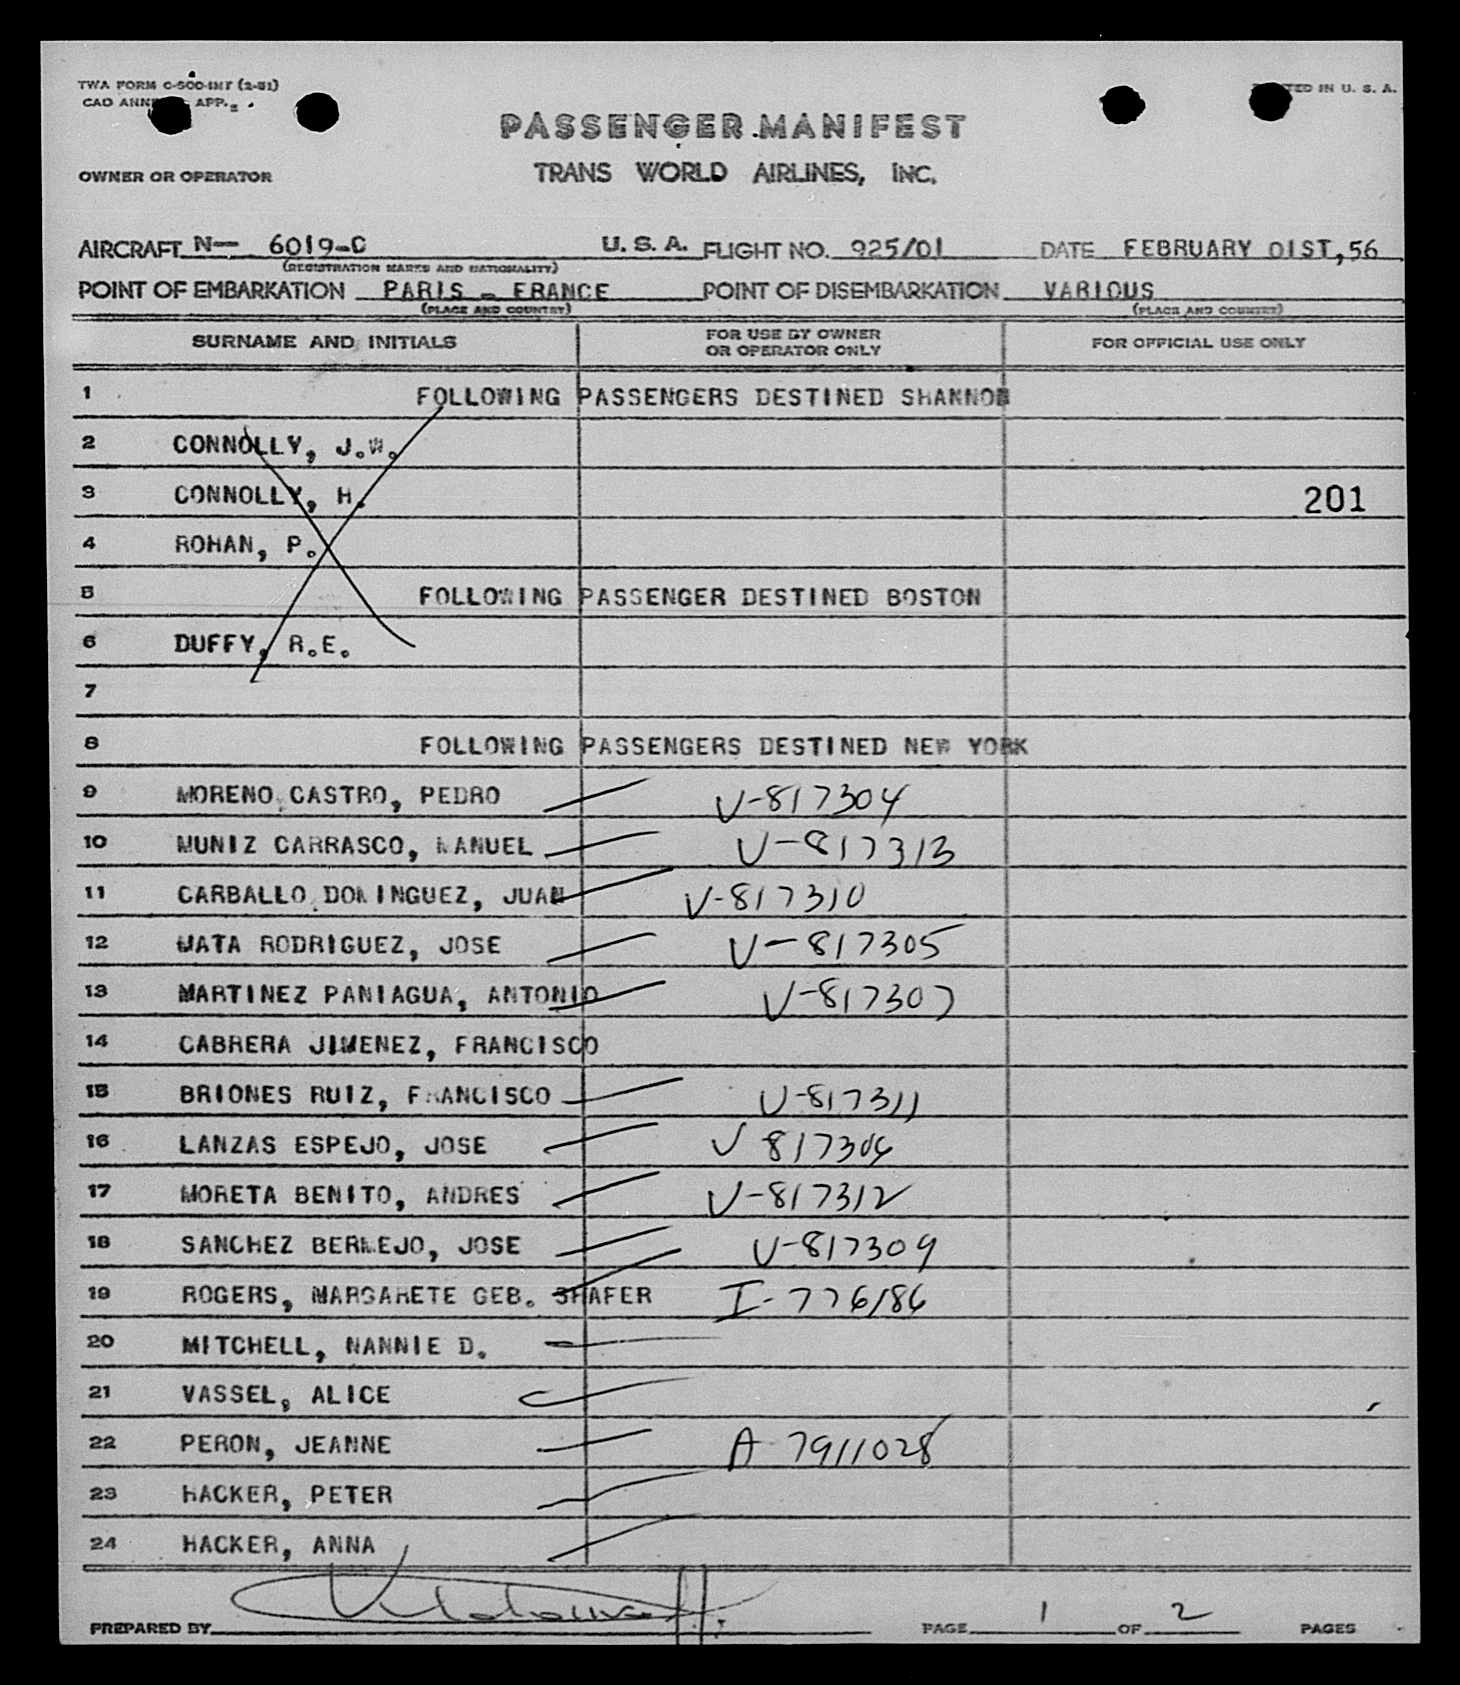 TWA FORM C-500-INT (2-51)
CAO APP.
IN U. S. A.
PASSENGER MANIFEST
OWNER OR OPERATOR TRANS WORLD AIRLINES, INC.
AIRCRAFT N— 6019-C U. S. A. FLIGHT NO. 925/01 DATE FEBRUARY 01ST,56
(REGISTRATION MARKS AND NATIONALITY)
POINT OF EMBARKATION PARIS - FRANCE POINT OF DISEMBARKATION VARIOUS
(PLACE AND COUNTRY) (PLACE AND COUNTRY)
SURNAME AND INITIALS FOR USE BY OWNER OR OPERATOR ONLY FOR OFFICIAL USE ONLY
1 FOLLOWING PASSENGERS DESTINED SHANNON
2 CONNOLLY, J.W.
3 CONNOLLY, H. 201
4 ROHAN, P.
5 FOLLOWING PASSENGER DESTINED BOSTON
6 DUFFY, R.E.
7
8 FOLLOWING PASSENGERS DESTINED NEW YORK
9 MORENO CASTRO, PEDRO V-817304
10 MUNIZ CARRASCO, MANUEL V-817313
11 CARBALLO DOMINGUEZ, JUAN V-817310
12 MATA RODRIGUEZ, JOSE V-817305
13 MARTINEZ PANIAGUA, ANTONIO V-817307
14 CABRERA JIMENEZ, FRANCISCO
15 BRIONES RUIZ, FRANCISCO V-817311
16 LANZAS ESPEJO, JOSE V 817306
17 MORETA BENITO, ANDRES V-817312
18 SANCHEZ BERMEJO, JOSE V-817309
19 ROGERS, MARGARETE GEB. SHAFER I-776186
20 MITCHELL, NANNIE D.
21 VASSEL, ALICE
22 PERON, JEANNE A-7911028
23 HACKER, PETER
24 HACKER, ANNA
PREPARED BY PAGE 1 OF 2 PAGES